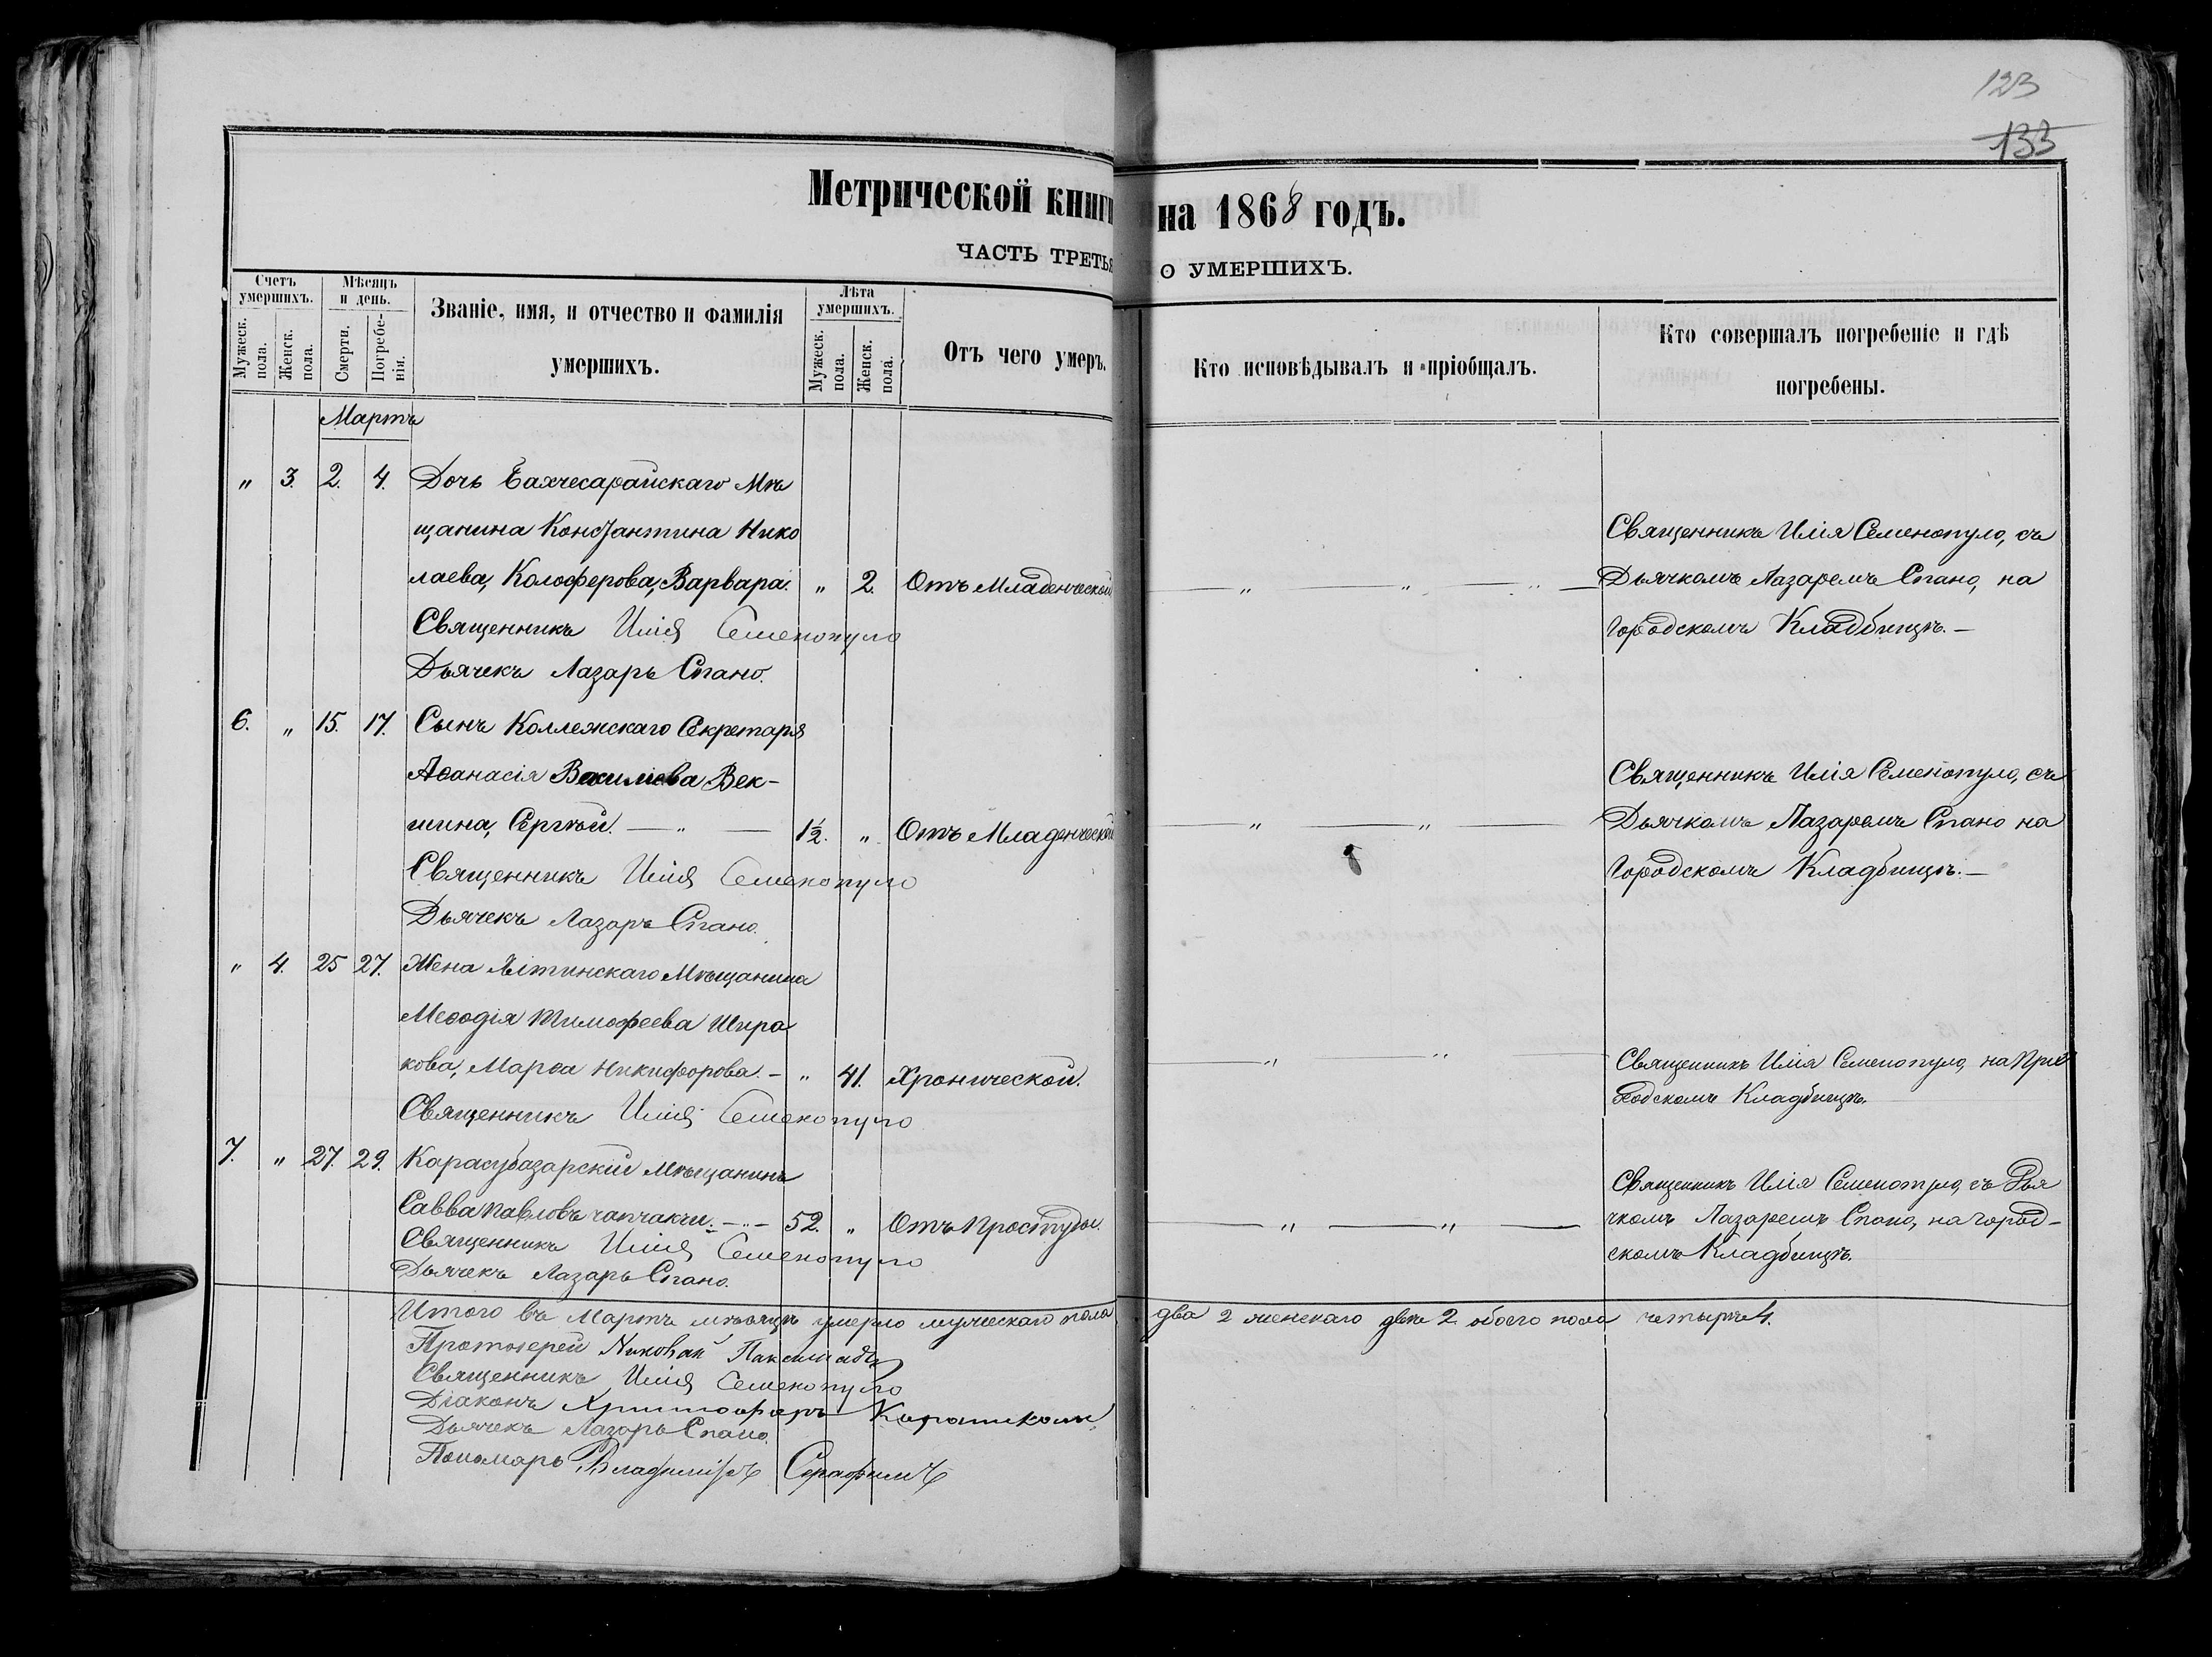 123
133
Метрической книги на 1868 годъ.
ЧАСТЬ ТРЕТЬЯ О УМЕРШИХЪ.
Счетъ умершихъ.
Мужеск. пола.
Женск. пола.
Мѣсяцъ и день.
Смерти.
Погребенія.
Званіе, имя, и отчество и фамилія
умершихъ.
Лѣта умершихъ.
Мужеск. пола.
Женск. пола.
Отъ чего умеръ.
Кто исповѣдывалъ и пріобщалъ.
Кто совершалъ погребеніе и гдѣ
погребены.
Мартъ
„ 3. 2. 4. Дочь Бахчесарайскаго Мѣ
щанина Константина Нико
лаева, Колоферова, Варвара. „ 2. Отъ Младенческой
Священникъ Илія Семенопуло
Дьячекъ Лазарь Спано.
Священникъ Илія Семенопуло, съ
Дьячкомъ Лазаремъ Спано, на
Городскомъ Кладбищѣ. –
6. „ 15. 17. Сынъ Коллежскаго Секретаря
Аѳанасія Васильева Век-
шина, Сергѣй. — „ — 1½. „ Отъ Младенческой
Священникъ Илія Семенопуло
Дьячекъ Лазарь Спано.
Священникъ Илія Семенопуло, съ
Дьячкомъ Лазаремъ Спано на
Городскомъ Кладбищѣ. –
„ 4. 25 27. Жена Ялтинскаго Мѣщанина
Меѳодія Тимофеева Широ
кова, Марѳа Никифорова. – „ 41. Хронической.
Священникъ Илія Семенопуло
Священникъ Илія Семенопуло, на При
ходскомъ Кладбищѣ.
7. „ 27. 29. Карасубазарскій Мѣщанинъ
Савва Павловъ Чапчакчи. – „ – 52. „ Отъ Простуды.
Священникъ Илія Семенопуло
Дьячекъ Лазарь Спано.
Священникъ Илія Семенопуло, съ Дья
чкомъ Лазаремъ Спано, на Город-
скомъ Кладбищѣ.
Итого въ Мартѣ мѣсяцѣ умерло мужескаго пола два 2 женскаго двѣ 2 обоего пола четыре 4.
Протоіерей Николай
Священникъ Илія Семенопуло
Діаконъ Христофоръ
Дьячекъ Лазарь Спано.
Пономарь Владиміръ Серафимъ